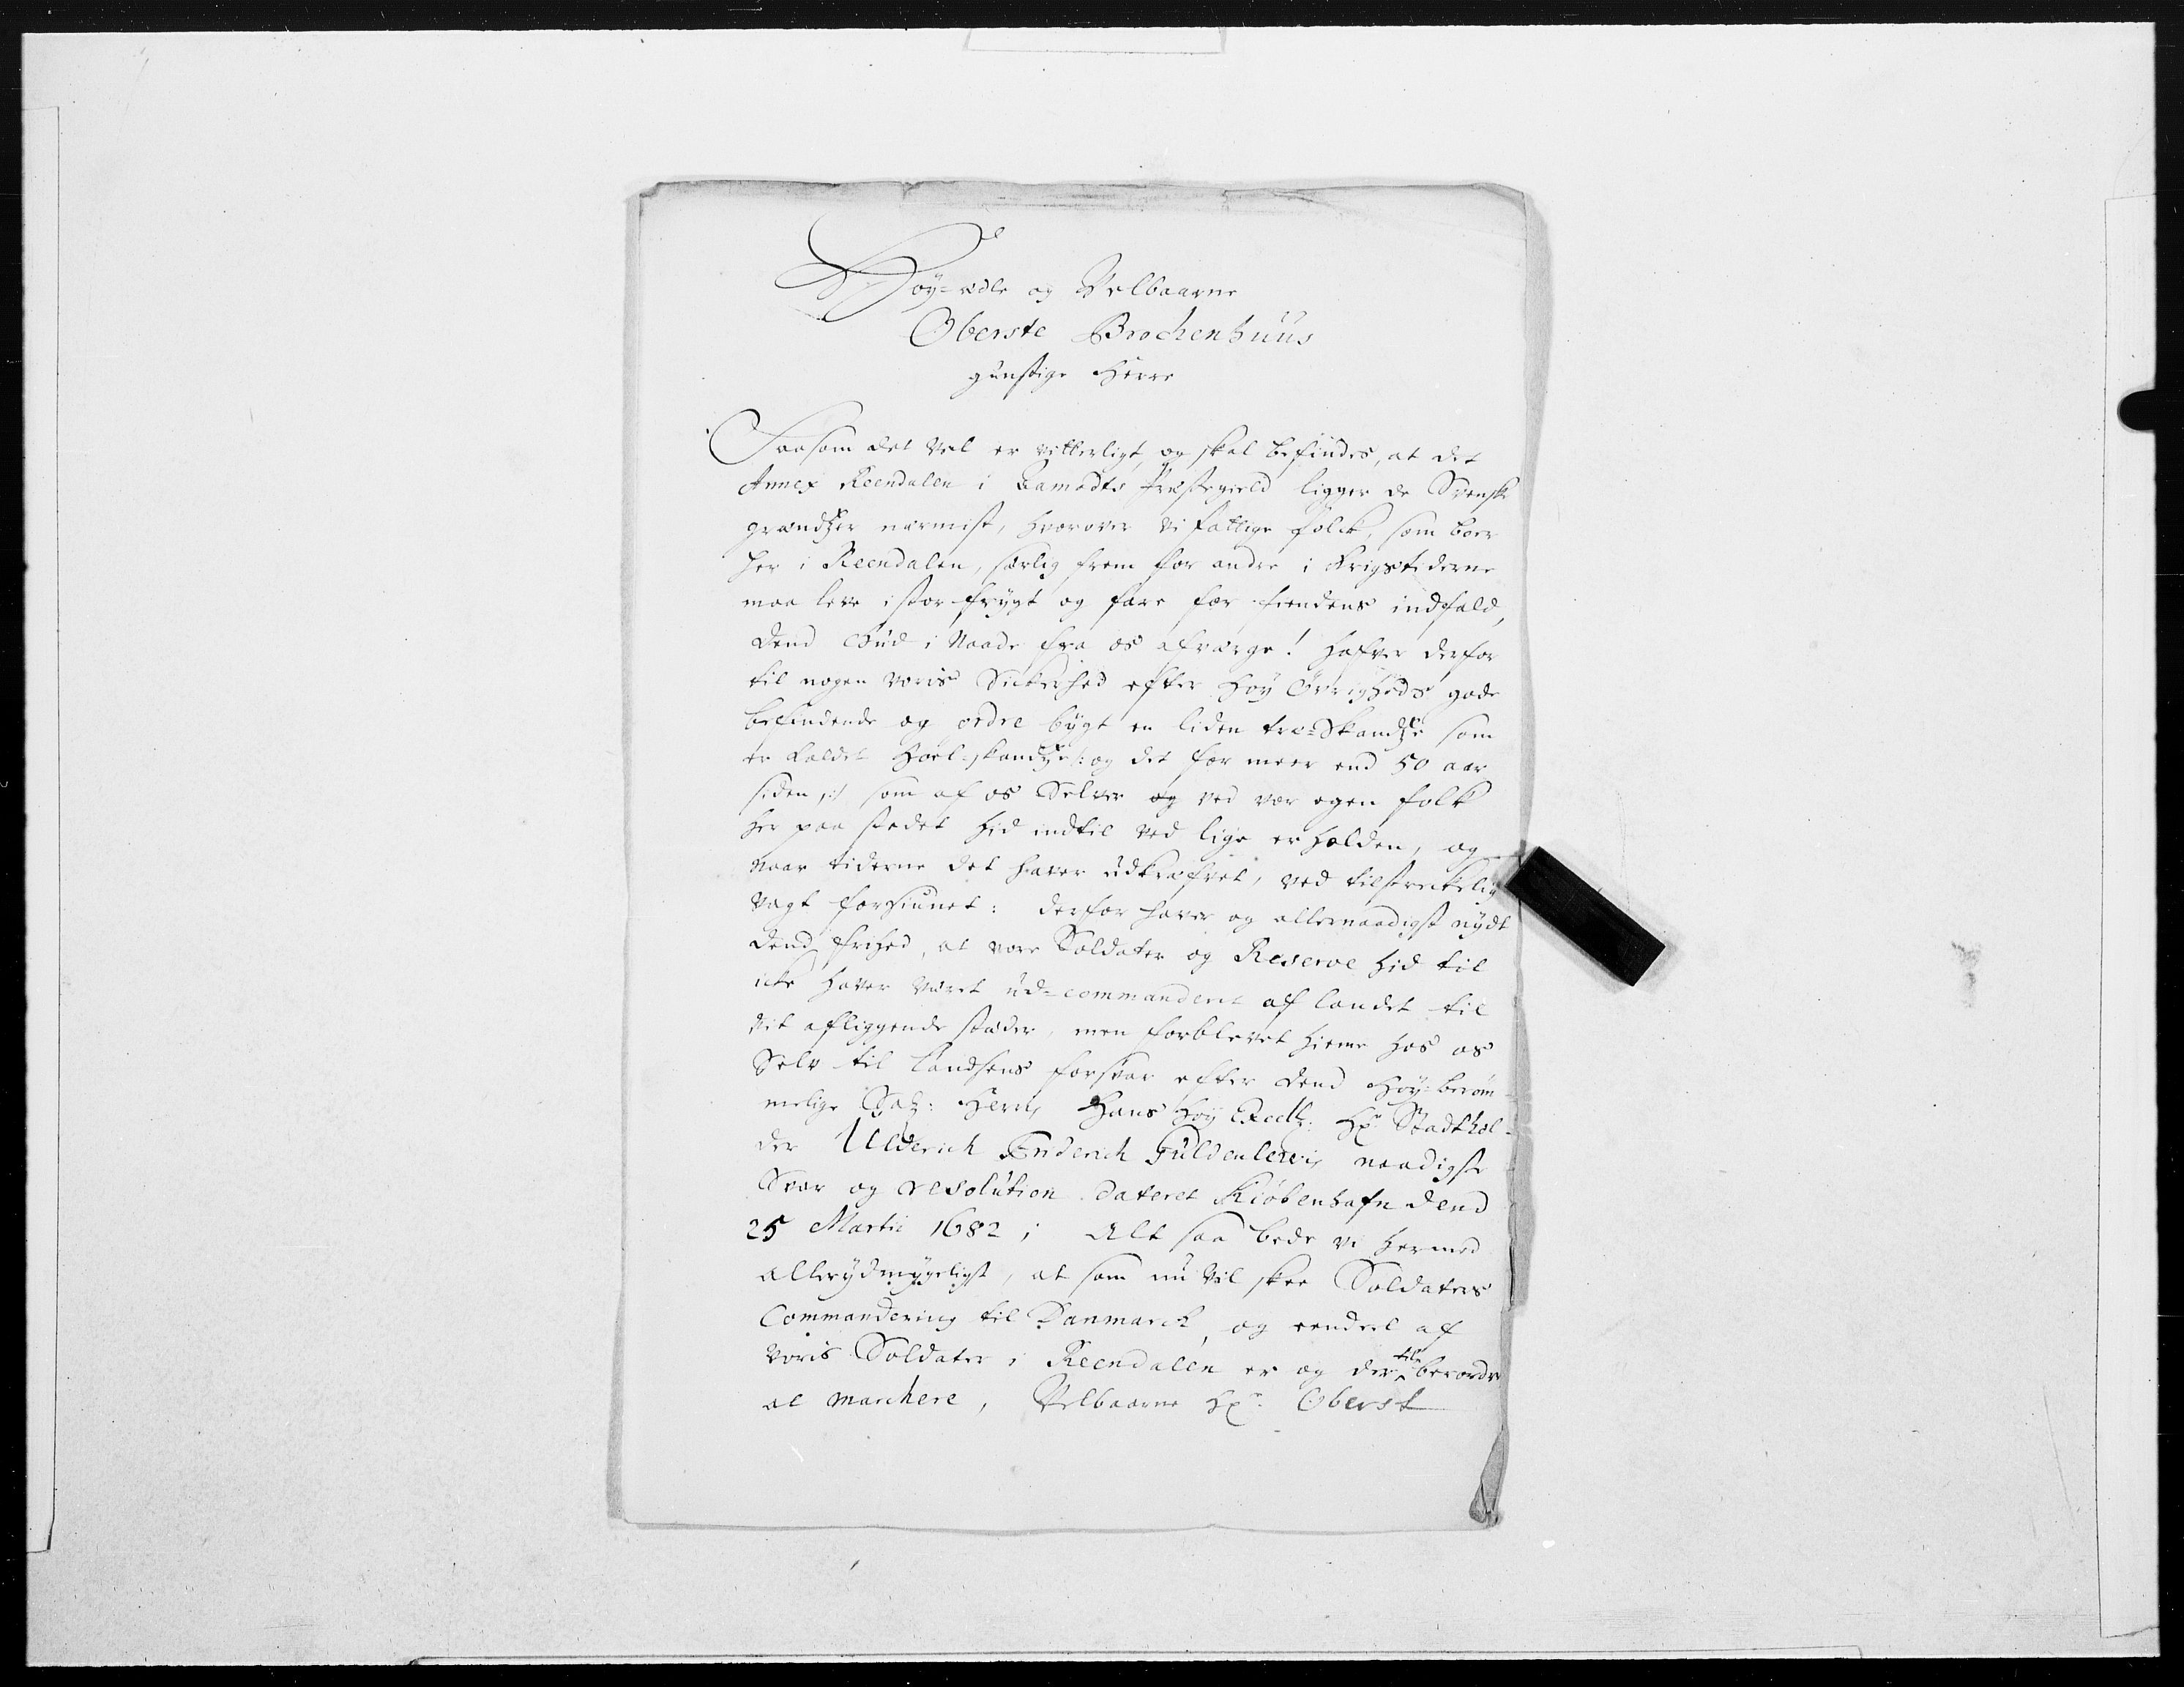 Høy-ædle og Velbaarne
Oberste Brochenhuus
gunstige Herre
Saasom det vel er vitterligt, og skal befindes, at det
Annex Reendalen i Aamodts Præstegield ligger de Svenske
grændtzer nærmist, hvorover vi fattige folck, som boer
her i Reendalen, særlig frem for andre i Krigstiderne
maa leve i stor frygt og fare for fiendens indfald,
dend Gud i Naade fra os afværge! hafver derfor
til nogen voris Sickerhed efter Høy Øvrigheds gode
befindende og ordre bygt en liden træ-Skandtze som
er kaldet Hoel-skandtze /: og det for meer end 50 aar
siden, :/ som af os Selver og ved vor egen folk
her paa stedet hid indtil ved lige er holden, og
naar tiderne det haver udkræfvet, ved tilstreckelig
vagt forsiunet: derfor haver og allernaadigst nydt
dend frihed, at vore Soldater og Reserve hid til
icke haver været ud-commanderet af landet til
vit afliggende stæder, men forblevet hieme hos os
Selv til landsens forsvar efter dend Høy-berøm-
melige Sal: Herris Hans Høy Excell: Hr. Stadthol-
der Ulderich Friderich Güldenlewis naadigste
Svar og resolution dateret Kiøbenhafn dend
25 Martii 1682; Alt saa bede vi hermed
allerydmygeligst, at som nu vil skee Soldaters
Commandering til Danmarck, og eendeel af
voris Soldater i Reendalen er og der til beordret
at marchere, Velbaarne Hr. Oberst